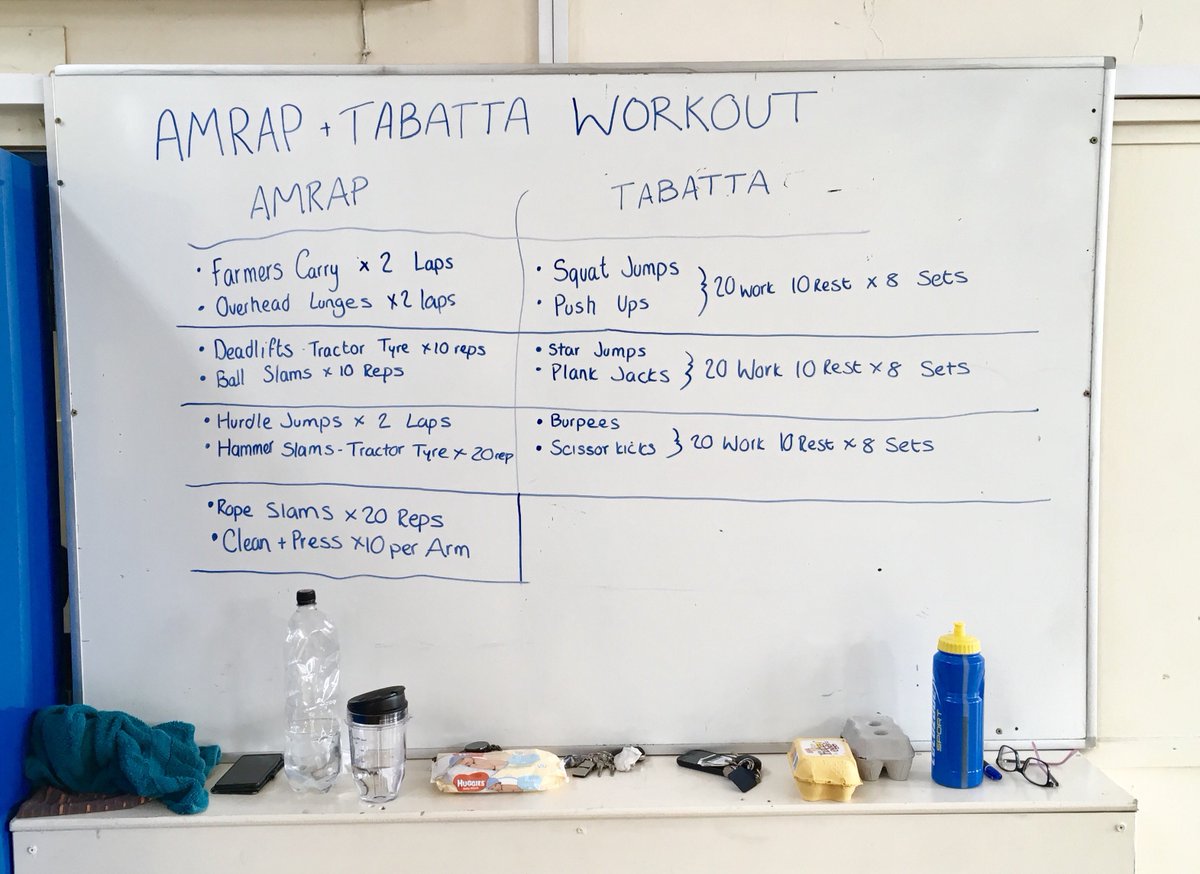 AMRAP + TABATTA WORKOUT
AMRAP
• Farmers Carry x 2 Laps
• Overhead Lunges x2 laps
• Deadlifts - Tractor Tyre x10 reps
• Ball Slams x 10 Reps
• Hurdle Jumps x 2 Laps
• Hammer Slams - Tractor Tyre x 20rep
• Rope Slams x 20 Reps
• Clean + Press x10 per Arm
TABATTA
• Squat Jumps
• Push Ups
} 20 work 10 Rest x 8 Sets
• Star Jumps
• Plank Jacks
} 20 Work 10 Rest x 8 Sets
• Burpees
• Scissor kicks
} 20 Work 10 Rest x 8 Sets
HUGGIES
SPORT